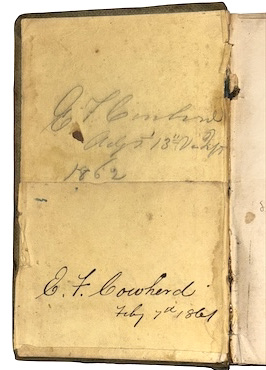 E. F. Cowherd
Adjt 13th Va Inft
1862
E. F. Cowherd
Feby 7th 1861